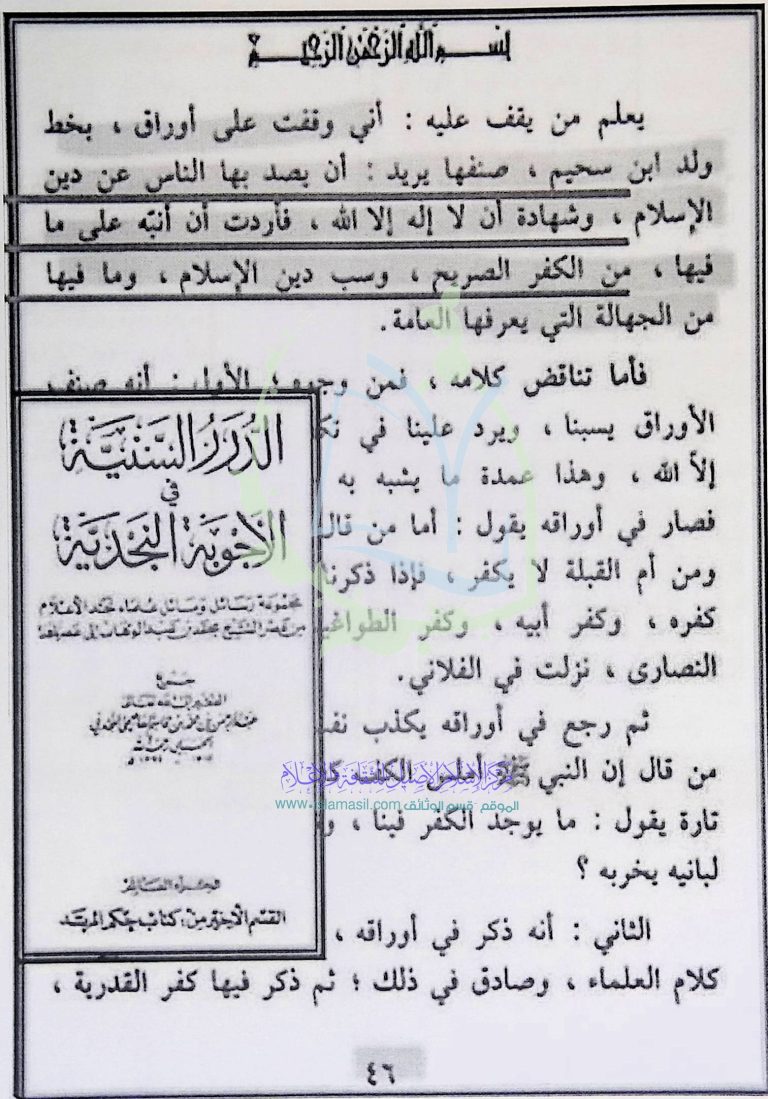 بسم الله الرحمن الرحيم
يعلم من يقف عليه : أني وقفت على أوراق ، بخط
ولد ابن سحيم ، صنفها يريد : أن يصد بها الناس عن دين
الإسلام ، وشهادة أن لا إله إلا الله ، فأردت أن أنبّه على ما
فيها ، من الكفر الصريح ، وسب دين الإسلام ، وما فيها
من الجهالة التي يعرفها العامة .
فأما تناقض كلامه ، فمن وجوه ؛ الأول : أنه صنف
الأوراق يسبنا ، ويرد علينا في
إلاّ الله ، وهذا عمدة ما يشبه به
فصار في أوراقه يقول : أما من قال
ومن أم القبلة لا يكفر ، فإذا ذكرنا
كفره ، وكفر أبيه ، وكفر
النصارى ، نزلت في الفلاني .
ثم رجع في أوراقه يكذب
من قال إن النبي ﷺ أملس الكلمة
تارة يقول : ما يوجد الكفر فينا ،
لبانيه يخربه ؟
الثاني : أنه ذكر في أوراقه ،
كلام العلماء ، وصادق في ذلك ؛ ثم ذكر فيها كفر القدرية ،
٤٦
الدُّرَرُ السَّنِيَّة
في
الأَجْوِبَة النَّجْدِيَّة
مجموعة رسائل ومسائل علماء نجد الأعلام
من عصر الشيخ محمد بن عبد الوهاب إلى عصرنا هذا
جمع
الفقير إلى الله تعالى
الجزء العاشر
القسم الأخير من : كتاب حكم المرتد
مركز الإسلام الأصيل للثقافة والإعلام
الموقع -قسم الوثائق www.islamasil.com